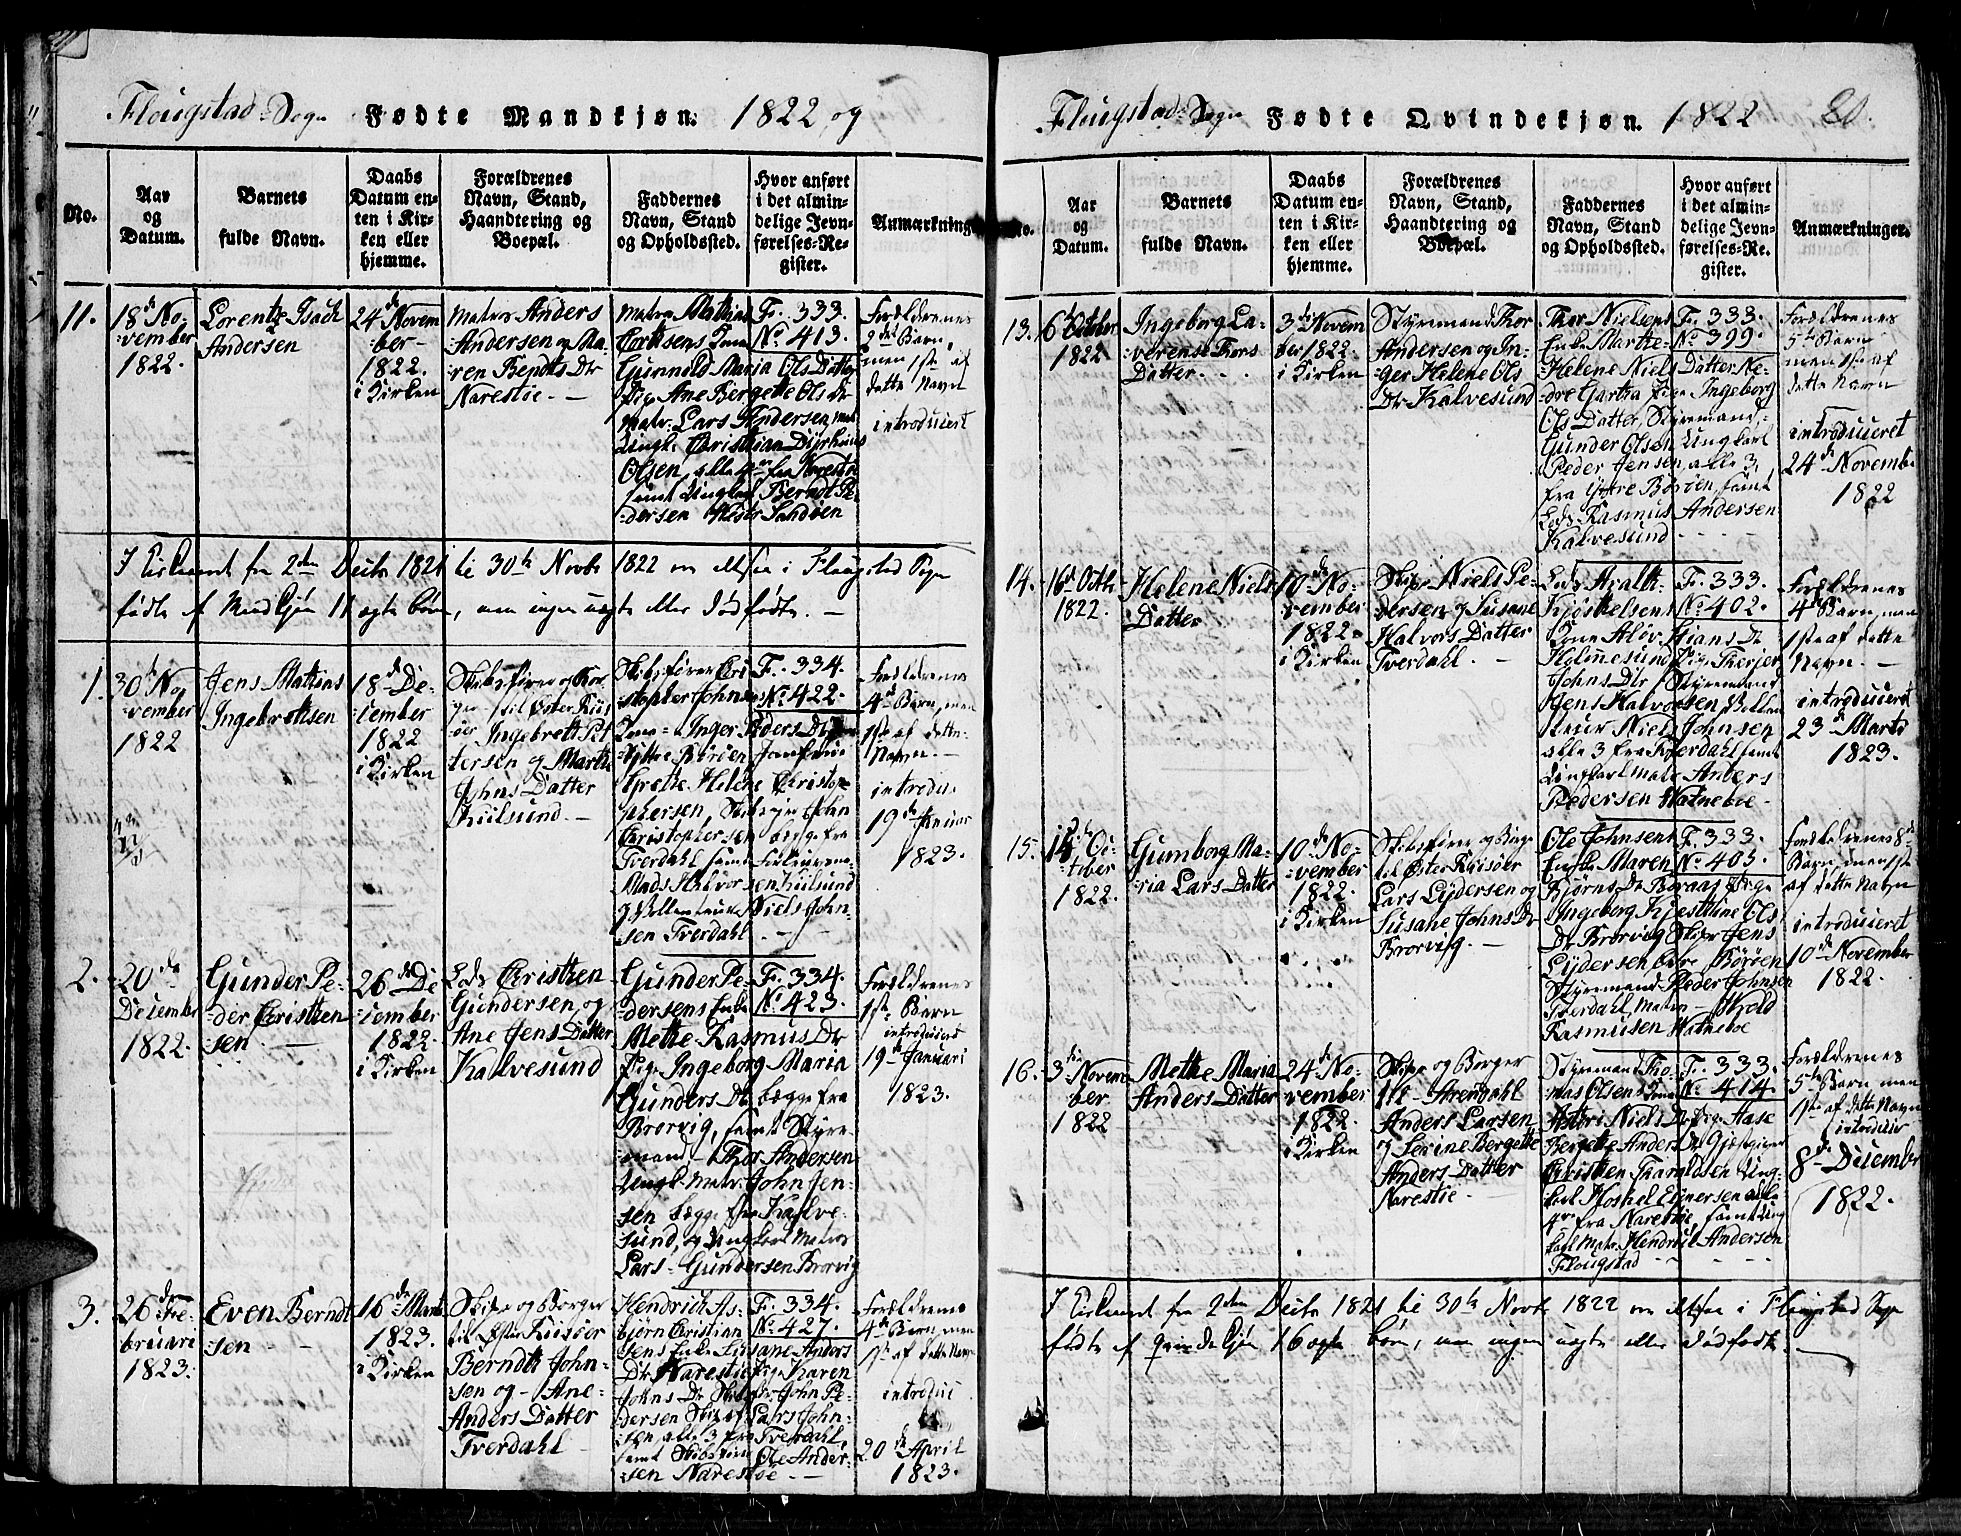 Flougstad Sogn Fødte Mandkjøn. 1822 og
No.
Aar
og
Datum.
Barnets
fulde Navn.
Daabs
Datum en-
ten i Kir-
ken eller
hjemme.
Forældrenes
Navn, Stand,
Haandtering og
Boepæl.
Faddernes
Navn, Stand
og Opholdssted.
Hvor anført
i det almin-
delige Jevn-
førelses-Re-
gister.
Anmærkning
11.
18de No-
vember
1822.
Lorentz Isach
Andersen
24de Novem
ber
1822.
i Kirken
Matros Anders
Andersen og Ma-
ren Bendts Dtr
Narestøe.
Matros Mathias
Gunnild Maria Ols Datter
Pige Ane Bergette Ols Dr
Matr: Lars Andersen,
Olsen, alle fra Narestø
samt Ungkarl Berndt Pe-
dersen Sandøen
F. 333.
No. 413.
Forældrenes
2det Barn,
men 1ste af
dette Navn
introduceret
I Kirkeaaret fra 2den Decbr 1821 til 30te Novbr 1822 ere altsaa i Flougstad Sogn
fødte af Mandkjøn 11 ægte børn, men ingen uægte eller dødfødte.
1.
30de No-
vember
1822
Jens Mathias
Ingebretsen
18de De-
cember
1822
i Kirken
Skibsfører og Bor-
ger til Øster Riis-
øer Ingebret Pet
tersen og Marthe
Johns Datter
Kiilsund.
Skibsfører Cri
stopher Johnsens
Kone Inger Peders Dtr
Yttre Børøen Jomfrue
Grethe Helene Christop-
phersen, John
Christophersen begge fra
Tverdahl samt
Mads Halvorsen Kiilsund
og Niels John-
sen Tverdahl
F. 334.
No. 422.
Forældrenes
4de Barn, men
1ste af dette
Navn.
introdu.
19de Januar
1823.
2.
20de
December
1822.
Gunder Pe-
der Cristen
sen.
26de De
cember
1822.
i Kirken
Lods Cristen
Gundersen og
Ane Jens Datter
Kalvesund
Gunder Pe-
dersens Enke
Mette Rasmus Dtr
Pige Ingeborg Maria
Gunders Dtr begge fra
Brorvig, samt Styre-
mand Thor Andersen
Ungk. Matr. John Jen-
sen begge fra Kalve-
sund, og Ungkarl Matros
Lars Gundersen Brorvig
F. 334.
No. 423.
Forældrenes
1ste Barn
introduceret
19de Januari
1823.
3.
26de Fe-
bruari
1823.
Even Berndt
sen
16de Marti
1823.
i Kirken
Skipr og Borger
til Øster Riisøer
Berndt John-
sen og Ane
Anders Datter
Tverdahl
Hendrich As-
bjørn Cristian
sens Enke Susane Anders
Dtr Narestøe Pige Karen
Johns Dr John Pe-
dersen Lars John-
sen, alle 3 fra Tverdahl,
samt Skibsfører Ole Ander-
sen Narestøe
F. 334.
No. 427.
Forældrenes
4de Barn, men
1ste af dette Navn
introduc
20de April
1823.
Flougstad Sogn Fødte Qvindekjøn. 1822 20.
No.
Aar
og
Datum.
Barnets
fulde Navn.
Daabs
Datum en-
ten i Kir-
ken eller
hjemme.
Forældrenes
Navn, Stand,
Haandtering og
Boepæl.
Faddernes
Navn, Stand
og Opholdssted.
Hvor anført
i det almin-
delige Jevn-
førelses-Re-
gister.
Anmærkninger.
13.
6te October
1822
Ingeborg La-
verense Thors
Datter
3de Novem
ber 1822.
i Kirken
Styrmand Thor
Andersen og In-
ger Helene Ols
Dtr Kalvesund
Thor Nielsens
Enke Marthe
Helene Niels Datter Ne-
dre Gartha Pige Ingeborg
Ols Datter, Styremand
Gunder Olsen, Ungkarl
Peder Jensen, alle 3
fra Yttre Børøen, samt
Lods Rasmus Andersen
Kalvesund
F. 333.
No. 399.
Forældrenes
5te Barn
men 1ste af
dette Navn
introduceret
24de Novembr
1822
14.
16de Octbr
1822.
Helene Niels
Datter
10de No-
vember
1822.
i Kirken
Skipr Niels Pe-
dersen og Susane
Halvors Datter
Tverdahl.
Lods
Kone Aslov Hans Dr
Holmesund Pige Therjer
Johns Dtr Styremand
Jens Halvorsen
Niels Johnsen
alle 3 fra Tverdahl samt
Ungkarl Matr Anders
Pedersen Hatneboe
F. 333.
No. 402.
Forældrenes
4de Barn, men
1ste af dette
Navn.
introduceret
23de Marts
1823.
15.
15de Oc-
tober
1822.
Gumborg Ma-
ria Lars Datter
10de No-
vember
1822.
i Kirken
Skibsfører og Borger
til Øster Riisøer
Lars Lydersen og
Susane Johns Dr
Brorvig.
Ole Johnsens
Enke Maren
Bjørns Dr Boraas Pige
Ingeborg Kjestine Ols
Dr Brorvig Skipr Jens
Lydersen Børøen
Styremand Peder Johnsen
Tverdahl, Matr
Rasmusen Hatneboe
F. 333.
No. 403.
Forældrenes 8de
Barn, men 1ste
af dette Navn
introduceret
10de November
1822.
16.
3die Novem
ber
1822
Mette Maria
Anders Datter
24de No-
vember
1822.
i Kirken
Skipr og Borger
til Arendahl
Anders Larsen
og Serine Bergette
Anders Datter
Narestøe
Styremand Tho-
mas Olsens Kone
Astri Niels Dr Pige Aase
Bergette Anders Dr Gjæstgiver
Cristen Tharaldsen Ung-
karl Einersen alle
4re fra Narestøe, samt Ung
karl Matr. Hendrik Andersen
Flougstad
F. 333.
No. 414.
Forældrenes
5te Barn men
1ste af dette Navn
introducer
8de December
1822.
I Kirkeaaret fra 2den Decbr 1821 til 30te Novbr 1822 ere altsaa i Flougstad Sogn
fødte af Qvindekjøn 16 ægte børn, men ingen uægte eller dødfødte.